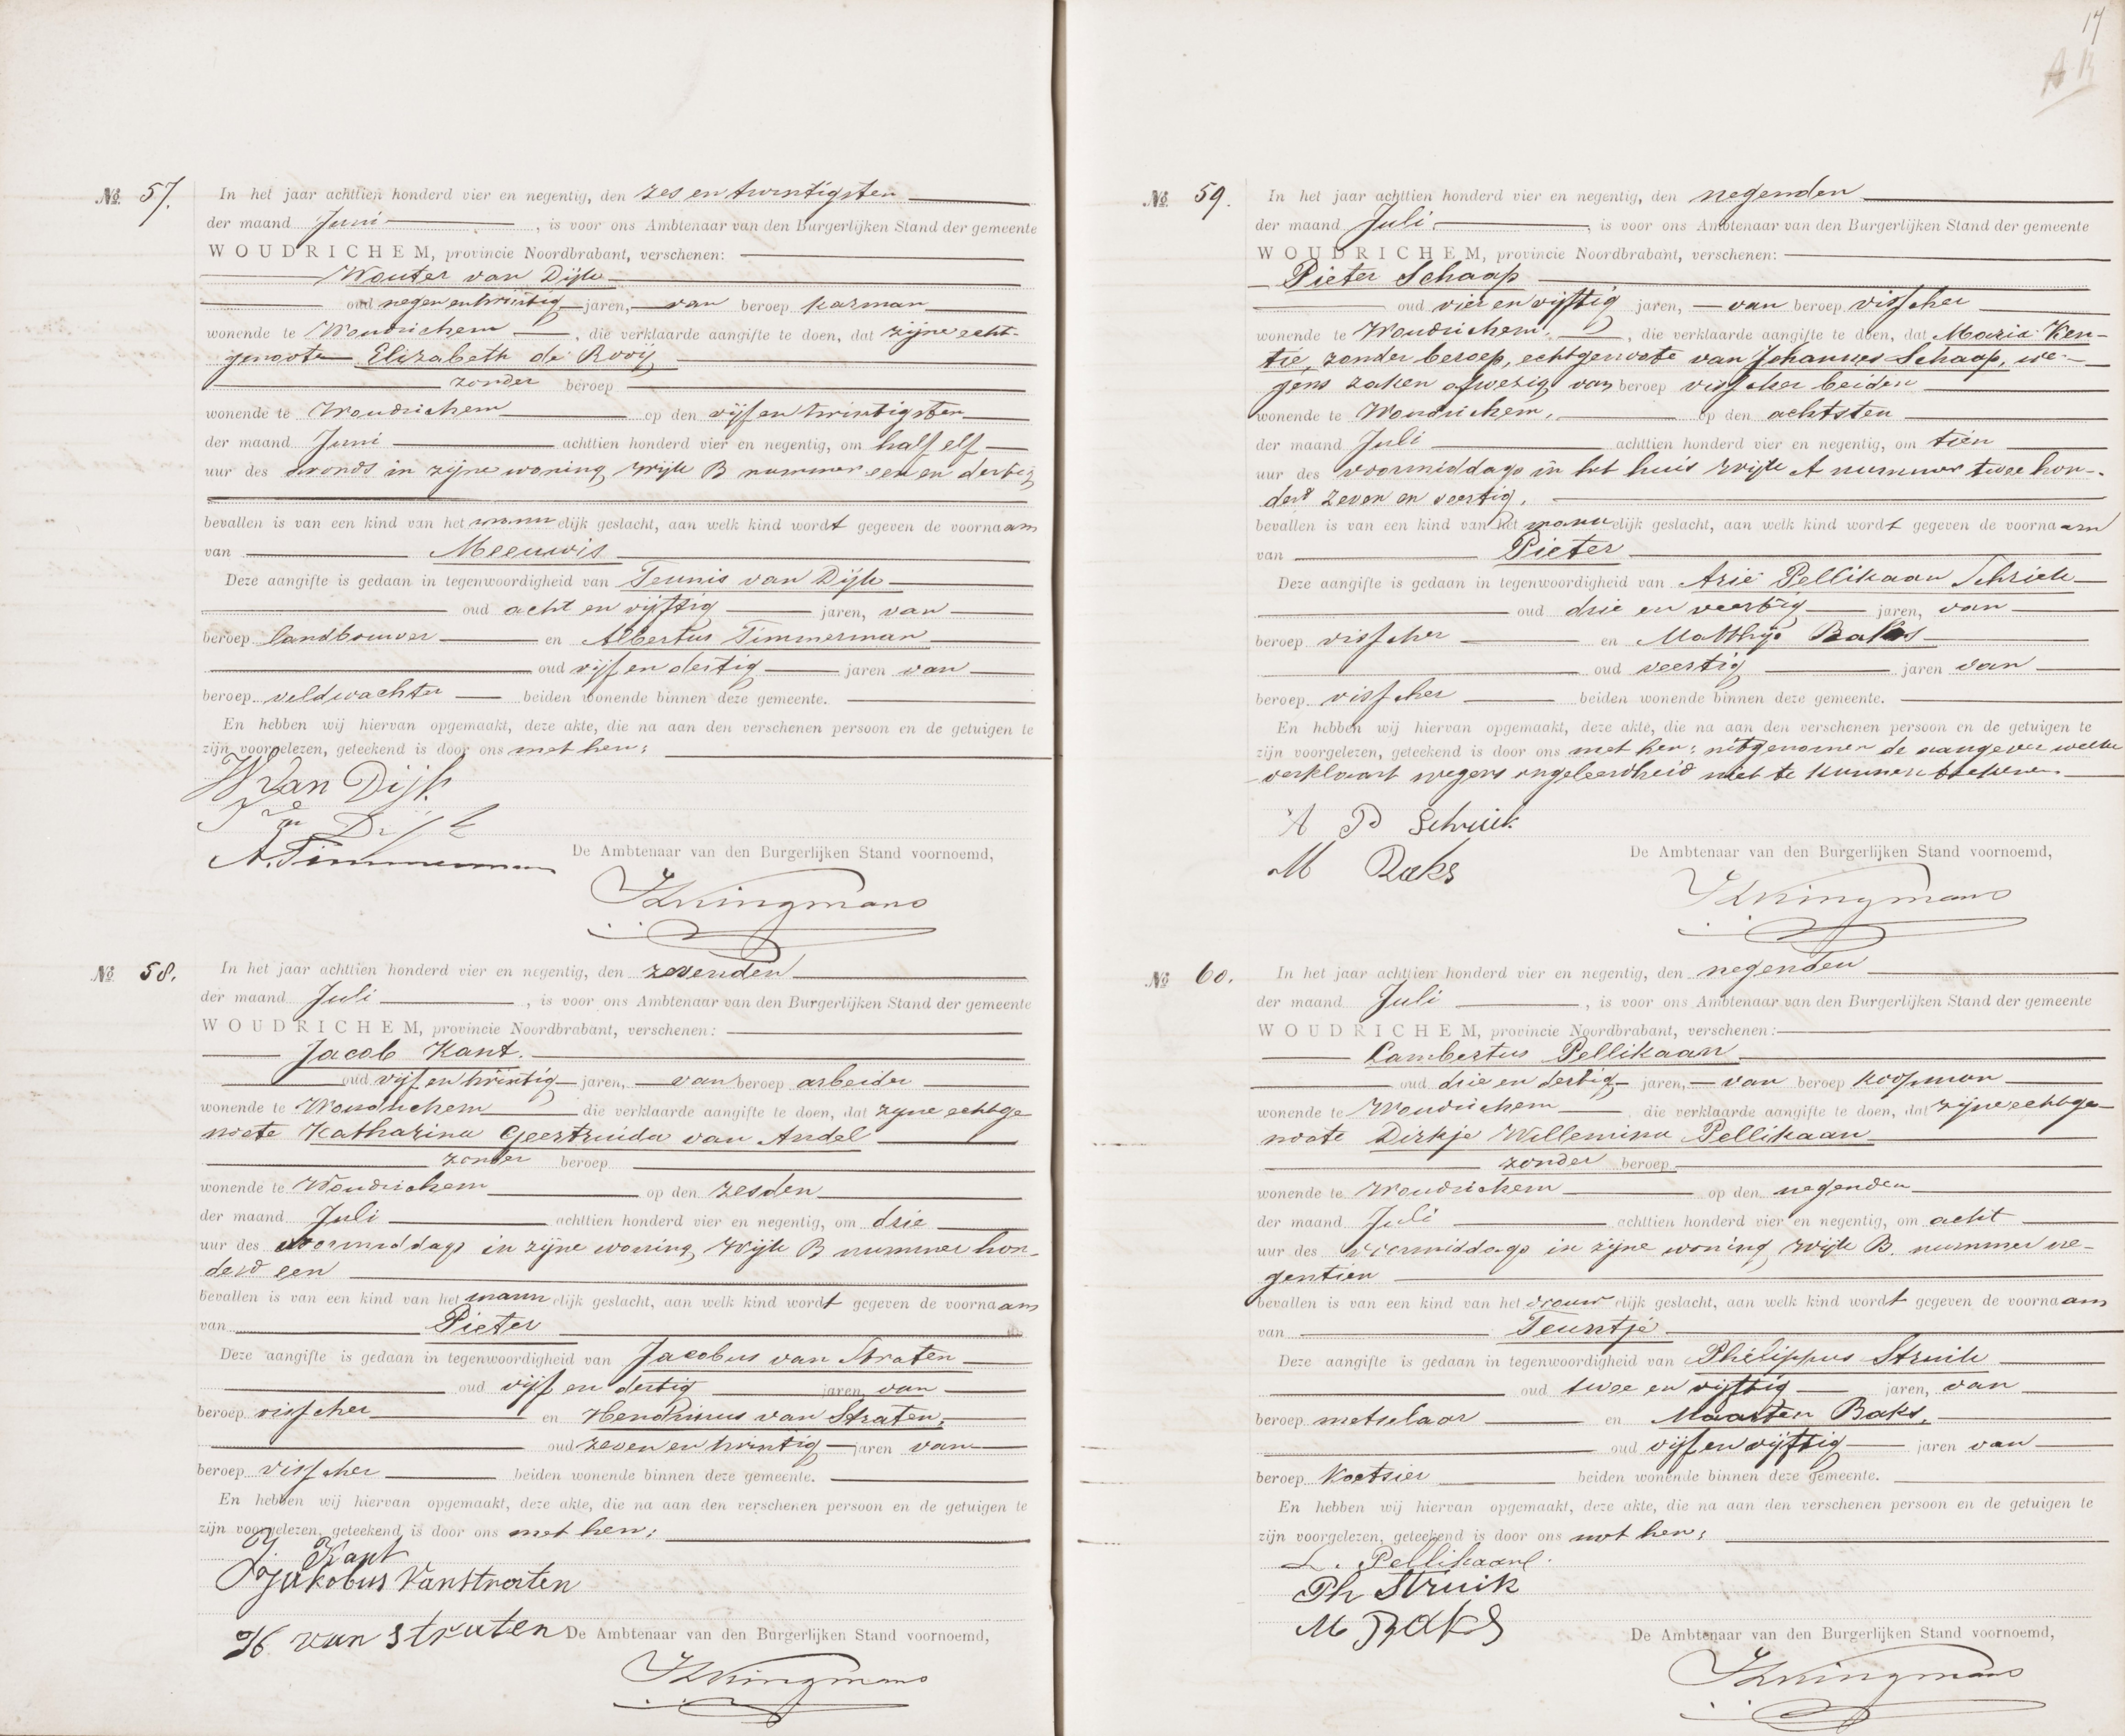 No. 57.
In het jaar achttien honderd vier en negentig, den zes en twintigsten
der maand Juni, is voor ons Ambtenaar van den Burgerlijken Stand der gemeente
WOUDRICHEM, provincie Noordbrabant, verschenen:
Wouter van Dijk
oud negen en twintig jaren, van beroep karman
wonende te Woudrichem, die verklaarde aangifte te doen, dat zijne echt-
genoote Elizabeth de Rooij
zonder beroep
wonende te Woudrichem op den vijf en twintigsten
der maand Juni achttien honderd vier en negentig, om half elf
uur des avonds in zijne woning, wijk B nummer een en dertig
bevallen is van een kind van het mannelijk geslacht, aan welk kind wordt gegeven de voornaam
van Meeuwis
Deze aangifte is gedaan in tegenwoordigheid van Teunis van Dijk
oud acht en vijftig jaren, van
beroep landbouwer en Albertus Timmerman
oud vijf en dertig jaren van
beroep veldwachter beiden wonende binnen deze gemeente.
En hebben wij hiervan opgemaakt, deze akte, die na aan den verschenen persoon en de getuigen te
zijn voorgelezen, geteekend is door ons met hen;
W van Dijk
T van Dijk
A. Timmerman
De Ambtenaar van den Burgerlijken Stand voornoemd,
No. 58.
In het jaar achttien honderd vier en negentig, den zevenden
der maand Juli, is voor ons Ambtenaar van den Burgerlijken Stand der gemeente
WOUDRICHEM, provincie Noordbrabant, verschenen:
Jacob Kant.
oud vijf en twintig jaren, van beroep arbeider
wonende te Woudrichem die verklaarde aangifte te doen, dat zyne echtge
noote Katharina Geertruida van Andel
zonder beroep
wonende te Woudrichem op den zesden
der maand Juli achttien honderd vier en negentig, om drie
uur des voormiddags in zijne woning, Wijk B nummer hon-
derd een
bevallen is van een kind van het mannelijk geslacht, aan welk kind wordt gegeven de voornaam
van Pieter
Deze aangifte is gedaan in tegenwoordigheid van Jacobus van Straten
oud vijf en dertig jaren, van
beroep visscher en Hendrinus van Straten,
oud zeven en twintig jaren van
beroep visscher beiden wonende binnen deze gemeente.
En hebben wij hiervan opgemaakt, deze akte, die na aan den verschenen persoon en de getuigen te
zijn voorgelezen, geteekend is door ons met hen;
J. Kant
Jakobus Van Straten
H. van Straten
De Ambtenaar van den Burgerlijken Stand voornoemd,
17
No. 59.
In het jaar achttien honderd vier en negentig, den negenden
der maand Juli, is voor ons Ambtenaar van den Burgerlijken Stand der gemeente
WOUDRICHEM, provincie Noordbrabant, verschenen:
Pieter Schaap
oud vier en vijftig jaren, van beroep visscher
wonende te Woudrichem, die verklaarde aangifte te doen, dat Maria Ken-
tie, zonder beroep, echtgenoote van Johannes Schaap, we-
gens zaken afwezig van beroep visscher beiden
wonende te Woudrichem, op den achtsten
der maand Juli achttien honderd vier en negentig, om tien
uur des voormiddags in het huis wijk A nummer twee hon-
derd zeven en veertig.
bevallen is van een kind van het mannelijk geslacht, aan welk kind wordt gegeven de voornaam
van Pieter
Deze aangifte is gedaan in tegenwoordigheid van Arie Pellikaan Schriek
oud drie en veertig jaren, van
beroep visscher en Matthijs Baks
oud veertig jaren van
beroep visscher beiden wonende binnen deze gemeente.
En hebben wij hiervan opgemaakt, deze akte, die na aan den verschenen persoon en de getuigen te
zijn voorgelezen, geteekend is door ons met hen; uitgenomen de aangever welke
verklaart wegens ongeleerdheid niet te kunnen teekenen.
A P Schriek
M Baks
De Ambtenaar van den Burgerlijken Stand voornoemd,
No. 60.
In het jaar achttien honderd vier en negentig, den negenden
der maand Juli, is voor ons Ambtenaar van den Burgerlijken Stand der gemeente
WOUDRICHEM, provincie Noordbrabant, verschenen:
Lambertus Pellikaan
oud drie en dertig jaren, van beroep koopman
wonende te Woudrichem die verklaarde aangifte te doen, dat zijne echtge-
noote Dirkje Willemina Pellikaan
zonder beroep
wonende te Woudrichem op den negenden
der maand Juli achttien honderd vier en negentig, om acht
uur des voormiddags in zijne woning, wijk B. nummer ne-
gentien
bevallen is van een kind van het vrouwelijk geslacht, aan welk kind wordt gegeven de voornaam
van Teuntje
Deze aangifte is gedaan in tegenwoordigheid van Philippus Struik
oud twee en vijftig jaren, van
beroep metselaar en Maarten Baks,
oud vijf en vijftig jaren van
beroep koetsier beiden wonende binnen deze gemeente.
En hebben wij hiervan opgemaakt, deze akte, die na aan den verschenen persoon en de getuigen te
zijn voorgelezen, geteekend is door ons met hen;
L. Pellikaan
Ph Struik
M Baks
De Ambtenaar van den Burgerlijken Stand voornoemd,